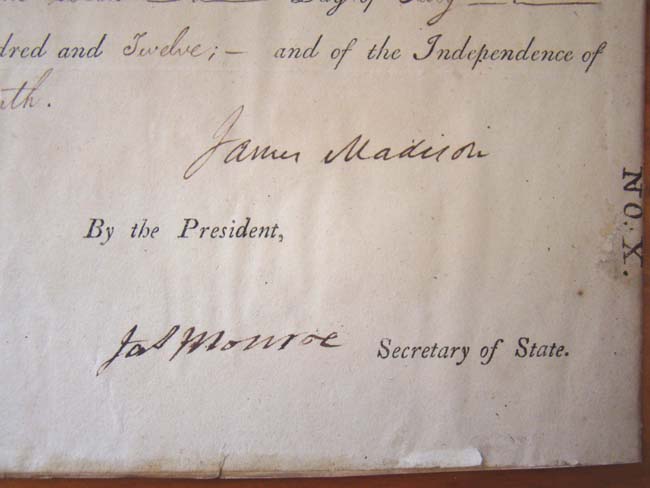 Day of July
dred and Twelve; — and of the Independence of
th.
James Madison
By the President,
Jas Monroe Secretary of State.
NO. X.